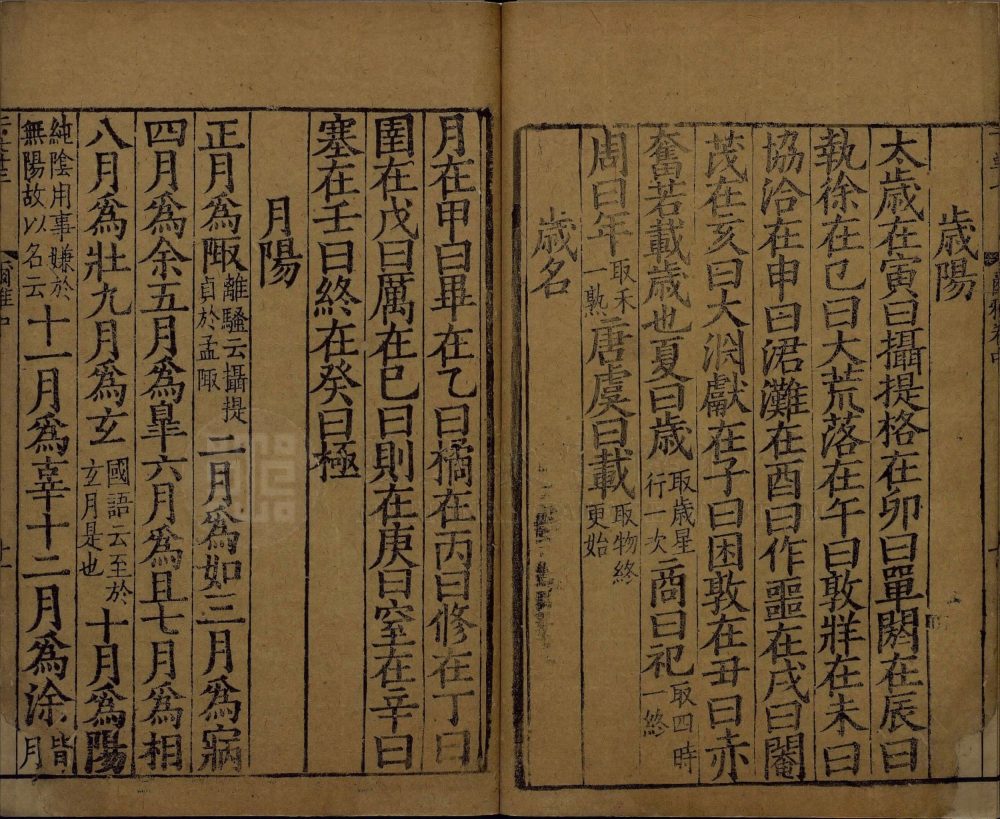 歲陽
太歲在寅曰攝提格在卯曰單閼在辰曰
執徐在巳曰大荒落在午曰敦牂在未曰
協洽在申曰涒灘在酉曰作噩在戌曰閹
茂在亥曰大淵獻在子曰困敦在丑曰赤
奮若載歲也夏曰歲取歲星行一次商曰祀取四時一終
周曰年取禾一熟唐虞曰載取物終更始
歲名
月在甲曰畢在乙曰橘在丙曰修在丁曰
圉在戊曰厲在已曰則在庚曰窒在辛曰
塞在壬曰終在癸曰極
月陽
正月爲陬離騷云攝提貞於孟陬二月爲如三月爲寎
四月爲余五月爲皐六月爲且七月爲相
八月爲壯九月爲玄國語云至於玄月是也十月爲陽
純陰用事嫌於無陽故以名云十一月爲辜十二月爲涂皆月